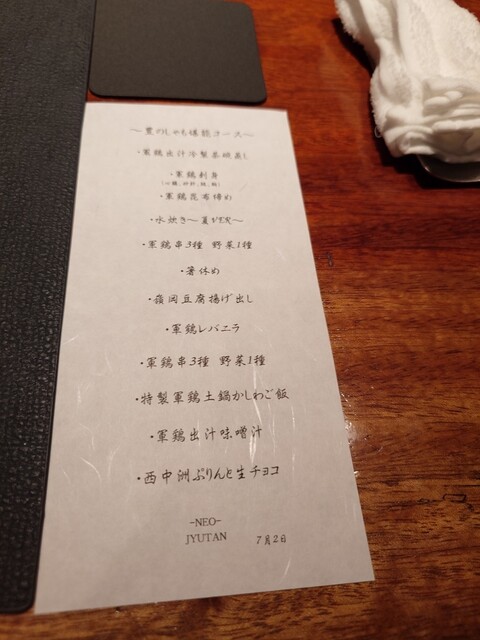 ～豊のしゃも堪能コース～
・軍鶏出汁冷製茶碗蒸し
・軍鶏刺身
・軍鶏昆布締め
・水炊き～夏VER～
・軍鶏串3種 野菜1種
・箸休め
・嶺岡豆腐揚げ出し
・軍鶏レバニラ
・軍鶏串3種 野菜1種
・特製軍鶏土鍋かしわご飯
・軍鶏出汁味噌汁
・西中洲ぷりんと生チョコ
-NEO-
JYUTAN 7月2日